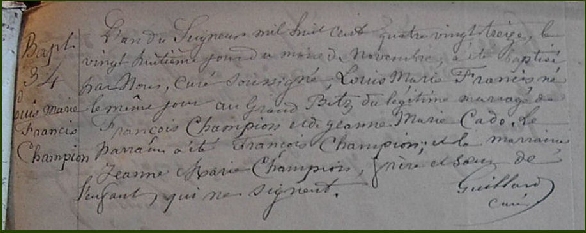 Bapt.
34
Louis Marie
Francis
Champion
L'an du Seigneur mil huit cent quatre vingt treize, le
vingt huitième jour du mois de Novembre, a été baptisé
par Nous, Curé soussigné, Louis Marie Francis né
le même jour au Grand Betz du légitime mariage de
François Champion et de Jeanne Marie Cado. Le
parrain a été François Champion, et la marraine
Jeanne Marie Champion, frère et soeur de
l'enfant, qui ne signent.
Guillard
curé